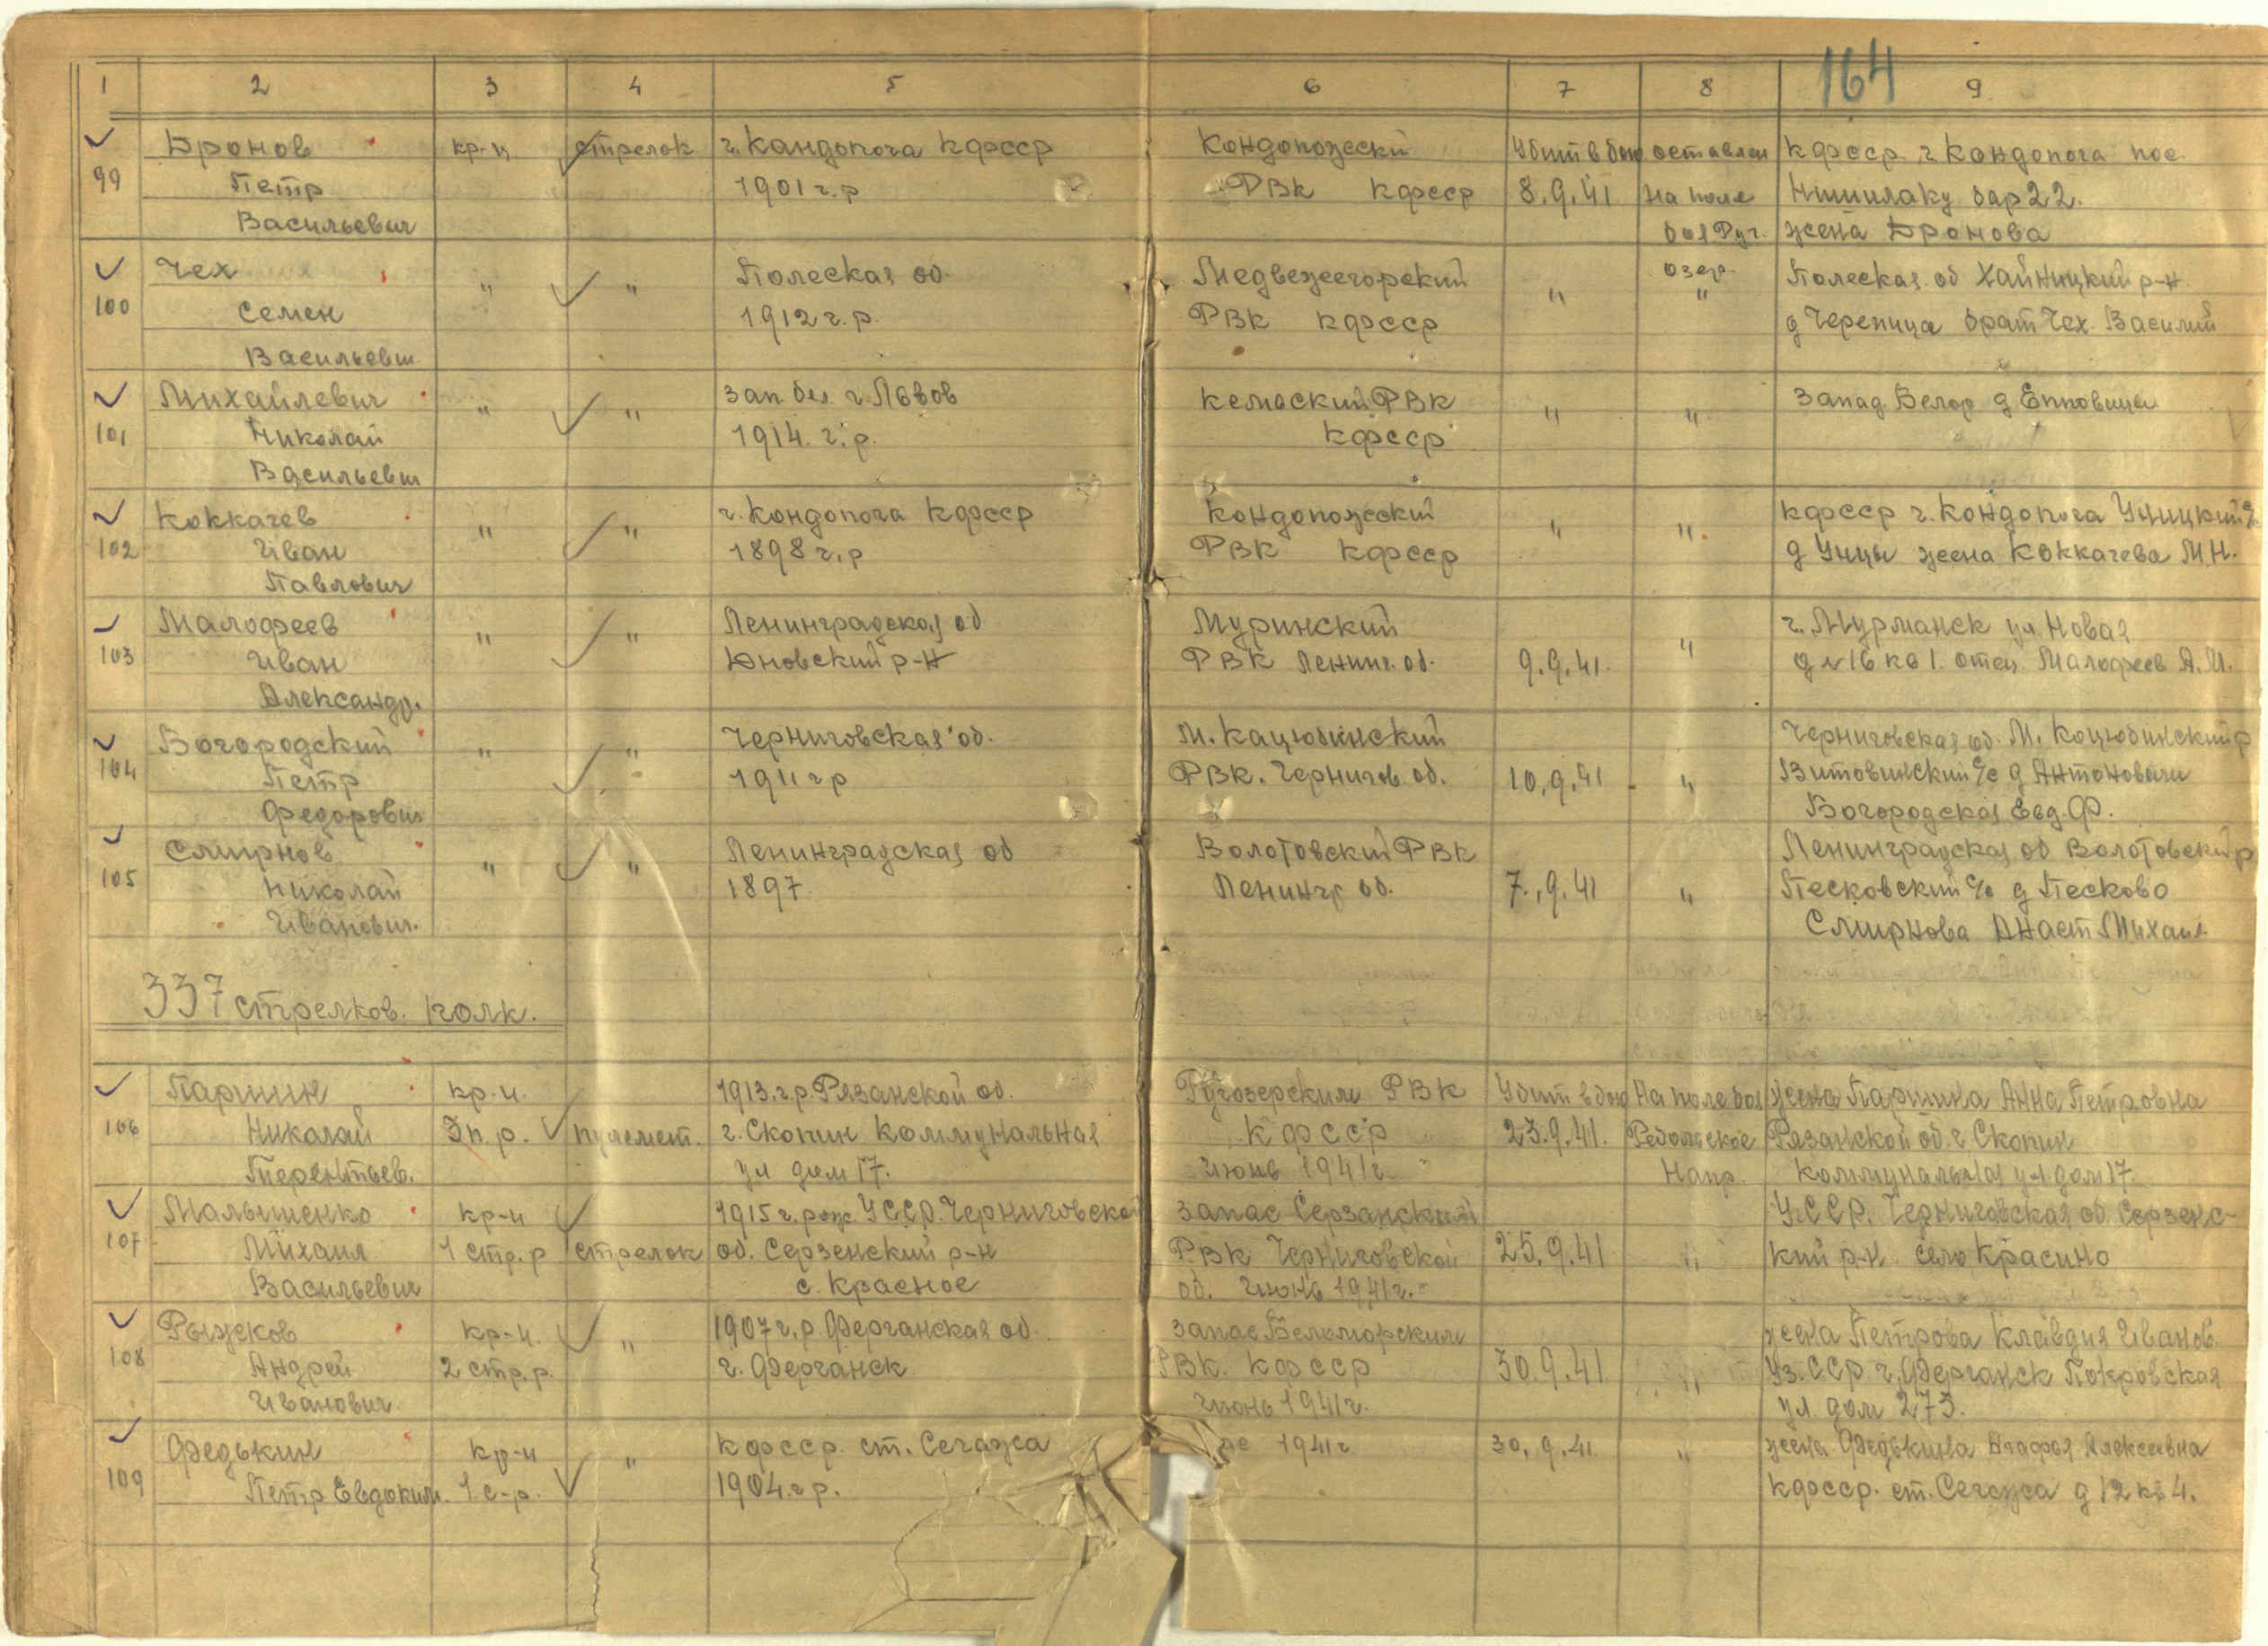 164
1 2 3 4 5 6 7 8 9
99 Бронов кр-ц стрелок г. Кандопога КФССР Кондопожский Убит в бою оставлен КФССР г. Кондопога пос.
Петр 1901 г.р РВК КФССР 8.9.41 на поле бар 22.
Васильевич боя Руг. жена Бронова
озер.
100 Чех " " Полеская об. Медвежегорский " " Полеская об Хайницкий р-н
Семен 1912 г.р. РВК КФССР д Черепица брат Чех Василий
Васильевич
101 Михайлевич " " Зап. бел. г. Львов Кемьский РВК " " Запад. Белор д
Николай 1914. г.р. КФССР
Васильевич
102 Коккачев " " г. Кондопога КФССР Кондопожский " " КФССР г. Кондопога Уницкий с/с
Иван 1898 г.р РВК КФССР д Уницы жена Коккачева М.Н.
Павлович
103 Малофеев " " Ленинградская об Муринский " г. Мурманск ул. Новая
Иван р-н РВК Ленинг. об. 9.9.41. д №16 кв 1. отец. Малофеев А.М.
Александр.
104 Богородский " " Черниговская об. М. Кацюбинский Черниговская об. М. Коцюбинский р
Петр 1911 г р РВК. Чернигов. об. 10.9.41 " с/с д
Федорович Богородская Евд. Ф.
105 Смирнов " " Ленинградская об Волотовский РВК Ленинградская об Волотовский р
Николай 1897 Ленингр об. 7.9.41 " Песковский с/с д Песково
Иванович. Смирнова Анаст Михаил.
337 стрелков. полк.
106 Паршин кр-ц. 1913. г.р. Рязанской об. Ругозерским РВК Убит в бою На поле боя жена Паршина Анна Петровна
Николай 3 п. р. пулемет. г. Скопин Коммунальная КФССР 23.9.41. Ребольское Рязанской об. г Скопин
Терентьев. ул дом 17. июнь 1941 г. Напр. Коммунальная ул дом 17.
107 Малышенко кр-ц 1915 г. рож УССР. Черниговской запас Серзанский УССР. Черниговская об. Серзенс-
Михаил 1 стр. р стрелок об. Серзенский р-н РВК Черниговской 25.9.41 " кий р-н село Красино
Васильевич с. Красное об. июнь 1941 г.
108 Рыжков кр-ц. " 1907 г.р. Ферганская об. запас Беломорским жена Петрова Клавдия Иванов.
Андрей 2 стр. р. г. Ферганск РВК. КФССР 30.9.41 " Уз. ССР г. Ферганск Покровская
Иванович. июнь 1941 г. ул. дом 273.
109 Федькин кр-ц " КФССР. ст. Сегажа 1941 г 30.9.41 " жена Федькина Агафья Алексеевна
Петр Евдоким. 1 с-р. 1904. г р. КФССР. ст. Сегежа д 12 кв 4.